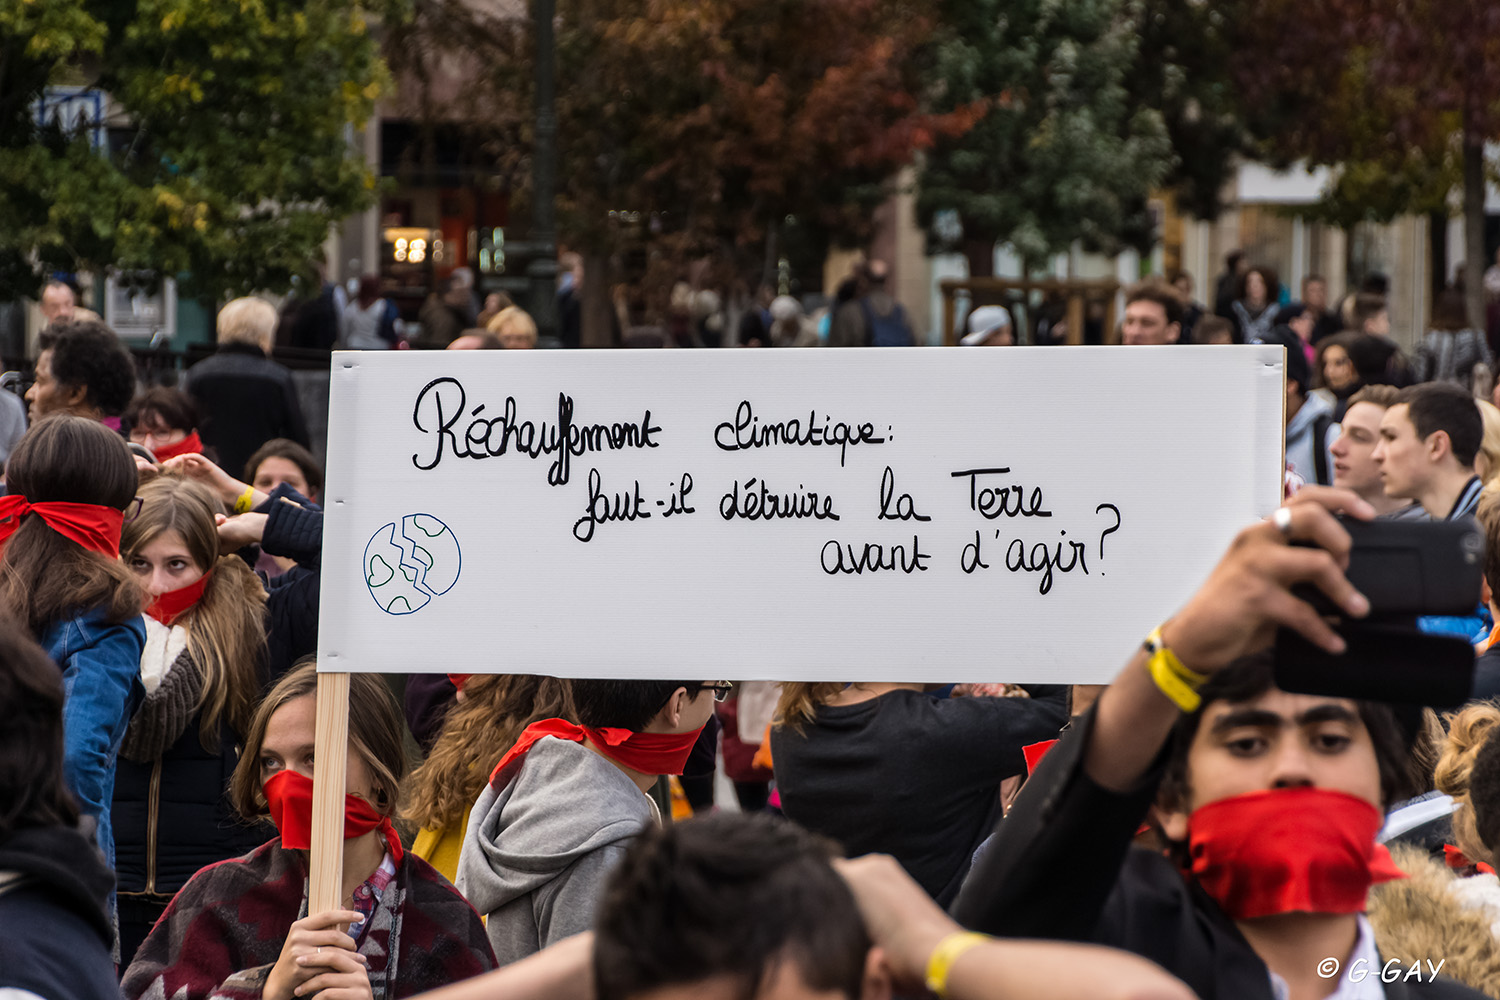 Réchauffement climatique:
faut-il détruire la Terre
avant d'agir?
© G-GAY